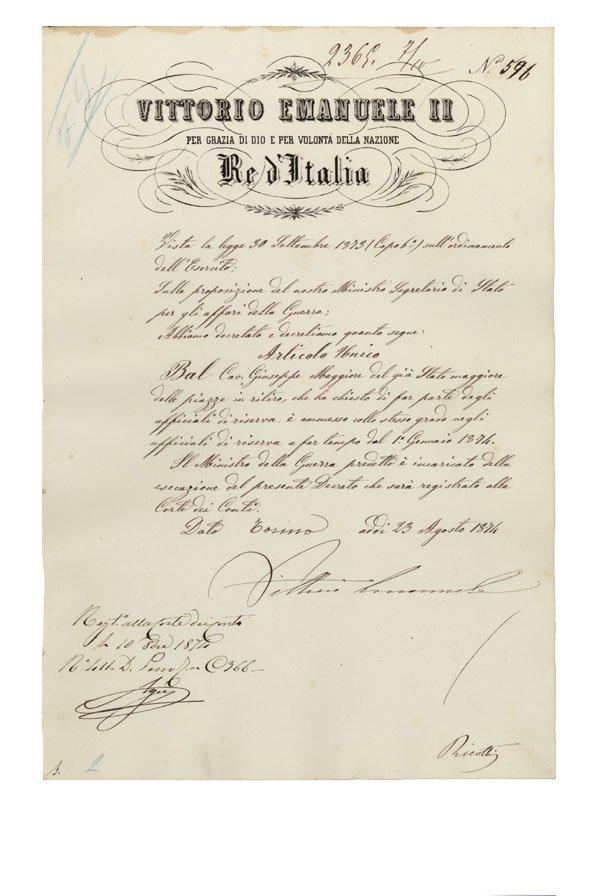 2365.
N.° 596
VITTORIO EMANUELE II
PER GRAZIA DI DIO E PER VOLONTÀ DELLA NAZIONE
Re d'Italia
Vista la legge 30 Settembre 1873 (Capo 6°) sull'ordinamento
dell'Esercito;
Sulla proposizione del nostro Ministro Segretario di Stato
per gli affari della Guerra;
Abbiamo decretato e decretiamo quanto segue:
Articolo Unico
Bal Cav. Giuseppe Maggiore del già Stato maggiore
delle piazze in ritiro, che ha chiesto di far parte degli
ufficiali di riserva, è ammesso collo stesso grado negli
ufficiali di riserva a far tempo dal 1° Gennaio 1874.
Il Ministro della Guerra predetto è incaricato della
esecuzione del presente Decreto che sarà registrato alla
Corte dei Conti.
Dato Torino addì 23 Agosto 1874
Vittorio Emanuele
Reg.to alla Corte dei conti
10 1874
366
Ricotti
2